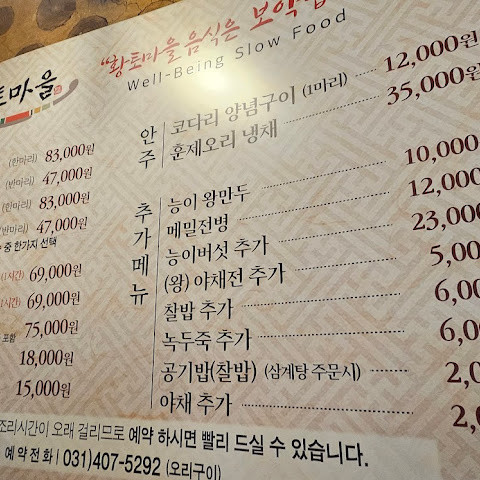 "황토마을 음식은 보약
Well-Being Slow Food
토마을
(한마리) 83,000원
(반마리) 47,000원
(한마리) 83,000원
(반마리) 47,000원
중 한가지 선택
(1시간) 69,000원
(1시간) 69,000원
포함 75,000원
18,000원
15,000원
안주
코다리 양념구이 (1마리) 12,000원
훈제오리 냉채 35,000원
추가메뉴
능이 왕만두 10,000
메밀전병 12,000
능이버섯 추가 23,000
(왕) 야채전 추가 5,000
찰밥 추가 6,00
녹두죽 추가 6,0
공기밥(찰밥) (삼계탕 주문시) 2,0
야채 추가 2,
조리시간이 오래 걸리므로 예약 하시면 빨리 드실 수 있습니다.
예약전화 | 031)407-5292 (오리구이)